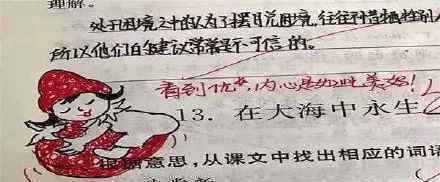 理解。
处于困境之中的人为了摆脱困境,往往不惜牺牲别人
所以他们的建议常常是不可信的。
看到优美,内心是如此美好!
13. 在大海中永生
根据意思,从课文中找出相应的词语